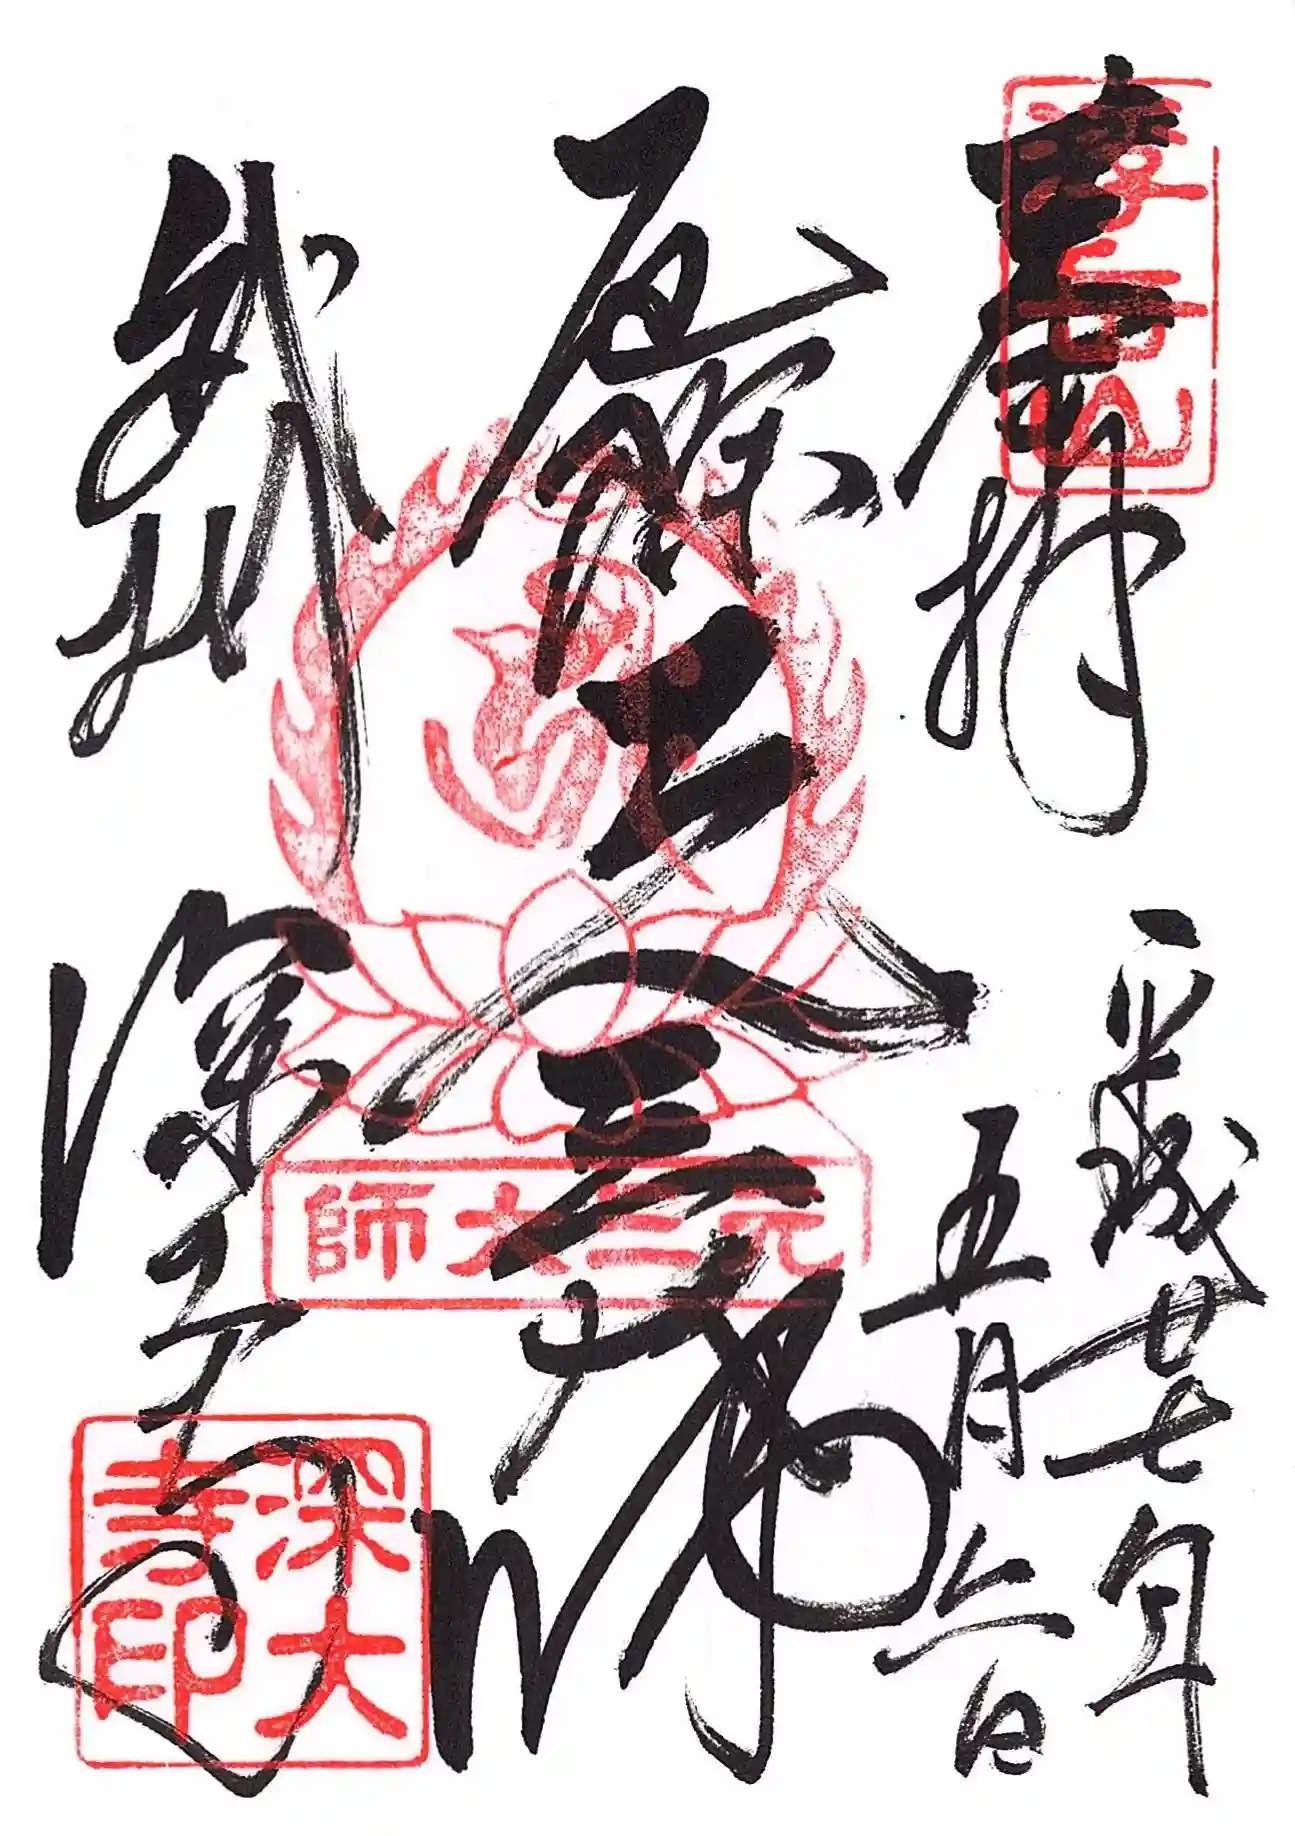 奉拝
浮岳山
平成廿七年
五月六日
厄除元三大師
元三大師
武州
深大寺
深大寺印